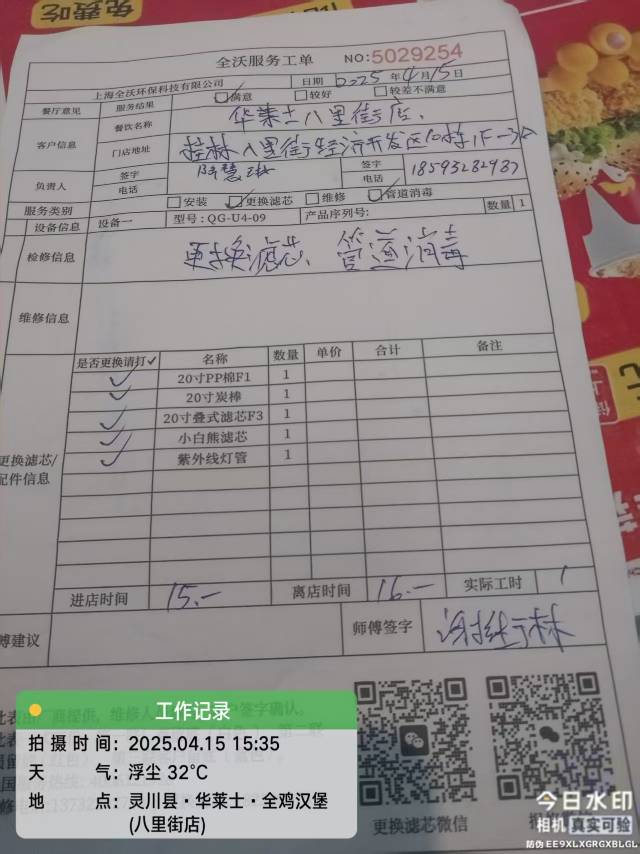 免费吃
全沃服务工单 NO:5029254
上海全沃环保科技有限公司 日期 2025 年 4 月 15 日
餐厅意见 服务结果 ☑满意 □较好 □较差不满意
客户信息 餐饮名称 华莱士八里街店.
门店地址 桂林八里街经济开发区 栋1F-3
负责人 签字 签字
电话 电话 18593282937
服务类别 □安装 ☑更换滤芯 □维修 ☑管道消毒
设备信息 设备一 型号: QG-U4-09 产品序列号: 数量 1
检修信息 更换滤芯、管道消毒
维修信息
是否更换请打✓ 名称 数量 单价 合计 备注
✓ 20寸PP棉F1 1
✓ 20寸炭棒 1
✓ 20寸叠式滤芯F3 1
✓ 小白熊滤芯 1
✓ 紫外线灯管 1
更换滤芯/
配件信息
进店时间 15.— 离店时间 16.— 实际工时 1
傅建议 师傅签字
工作记录
拍摄时间: 2025.04.15 15:35
天气: 浮尘 32°C
地点: 灵川县·华莱士·全鸡汉堡
(八里街店)
更换滤芯微信
今日水印
相机 真实可验
防伪 EE9XLXGRGXBLGL